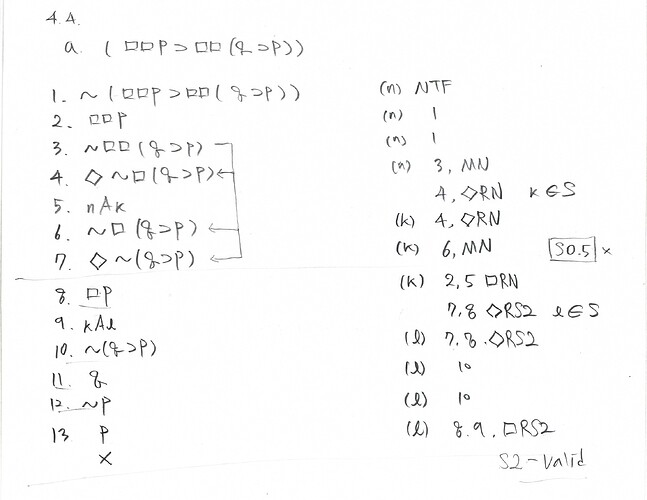 4.4.
a. ( □□P ⊃ □□ (q ⊃ P))
1. ~ (□□P ⊃ □□ ( q ⊃ P)) (n) NTF
2. □□P (n) 1
3. ~□□ (q ⊃ P) (n) 1
4. ◇ ~□ (q ⊃ P) (n) 3, MN
5. nAk 4, ◇RN k ∈ S
6. ~□ (q ⊃ P) (k) 4, ◇RN
7. ◇ ~ (q ⊃ P) (k) 6, MN S0.5 ×
8. □P (k) 2, 5 □RN
9. kAl 7, 8 ◇RS2 l ∈ S
10. ~(q ⊃ P) (l) 7, 8. ◇RS2
11. q (l) 10
12. ~P (l) 10
13 P (l) 8. 9, □RS2
× S2-valid